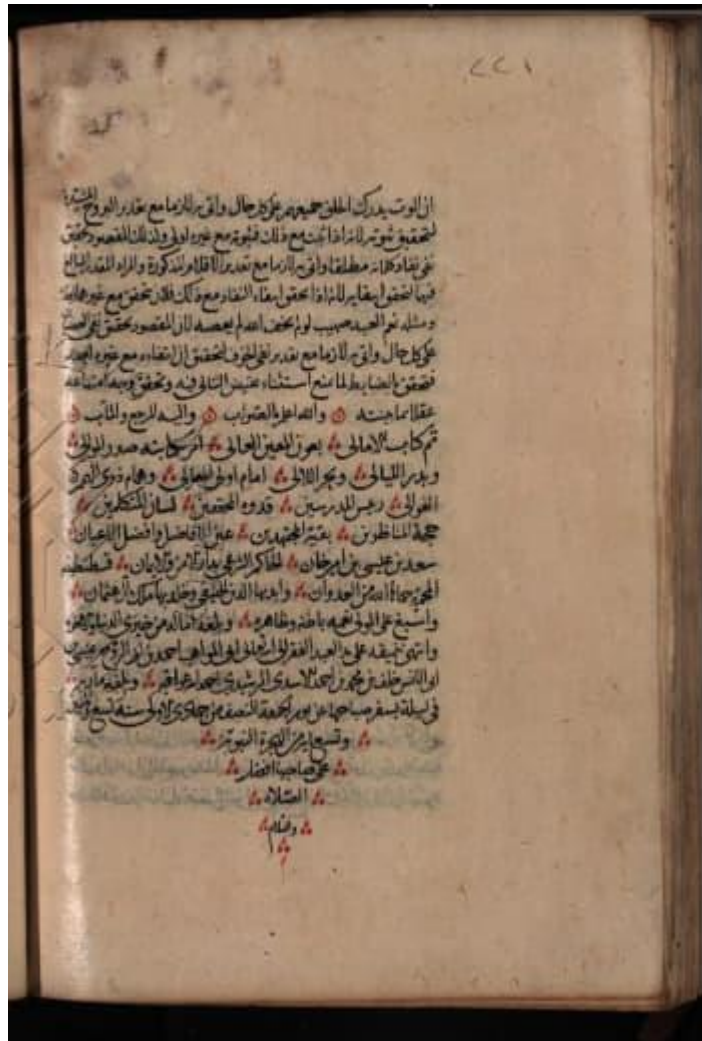 ٢٢١
ان الموت يدرك الخلق جميعهم على كل حال واتى بر لازما مع تقدير البروج المشيدة
لتحقيق ثبوته لانه اذا ثبت مع ذلك فثبوته مع غيره اولى وكذلك المقصود تحقق
نفى نفاد كلماته مطلقا واتى بر لازما مع تقدير الاقلام المذكورة والمراد المقدر
فيها لتحقق ابقاء لانه اذا تحقق بقاء النفاد مع ذلك فلان يتحقق مع غيره
ومثله نعم العبد صهيب لو لم يخف الله لم يعصه لان المقصود تحقق نفى
على كل حال واتى بر لازما مع تقدير نفى الخوف لتحقق ان انتفاءه مع غيره
فتحقق الضابط لما منع استثناء نقيض التالى فيه وتحقق وجه امتناعه
عقلا بما بينته والله اعلم بالصواب واليه المرجع والمآب
تم كتاب الامالى بعون المعين العالى امر بكتابته صدر الموالى
وبدر الليالى وبحر اللالى امام اولى المعالى وهمام ذوى
الغوالى رئيس المدرسين قدوة المحققين لسان المتكلمين
حجة المناظرين بقية المجتهدين عين الافاضل وافضل الاعيان
سعد بن عيسى بن امير خان الحاكم الشرعى بدار الامن والامان قسطنطينية
المحمية حماها الله من العدوان وايدها الدين الحنيفى وخلد بها ملك آل عثمان
واسبغ على المولى نعمه باطنة وظاهرة وبلغه آماله من خيرى الدنيا والاخرة
وانتهى تنميقه على يد العبد الفقير الى الله تعالى ابى المواهب احمد بن ابى الروح عيسى بن
ابى الانس خلف بن محمد بن احمد الاسدى الرشيدى احمد الله عواقبه وبلغه مآربه
فى ليلة يسفر صباحها عن يوم الجمعة النصف من جمادى الاولى سنة تسع
وتسعمايه من الهجرة النبوية
على صاحبها افضل
الصلاة
والسلام